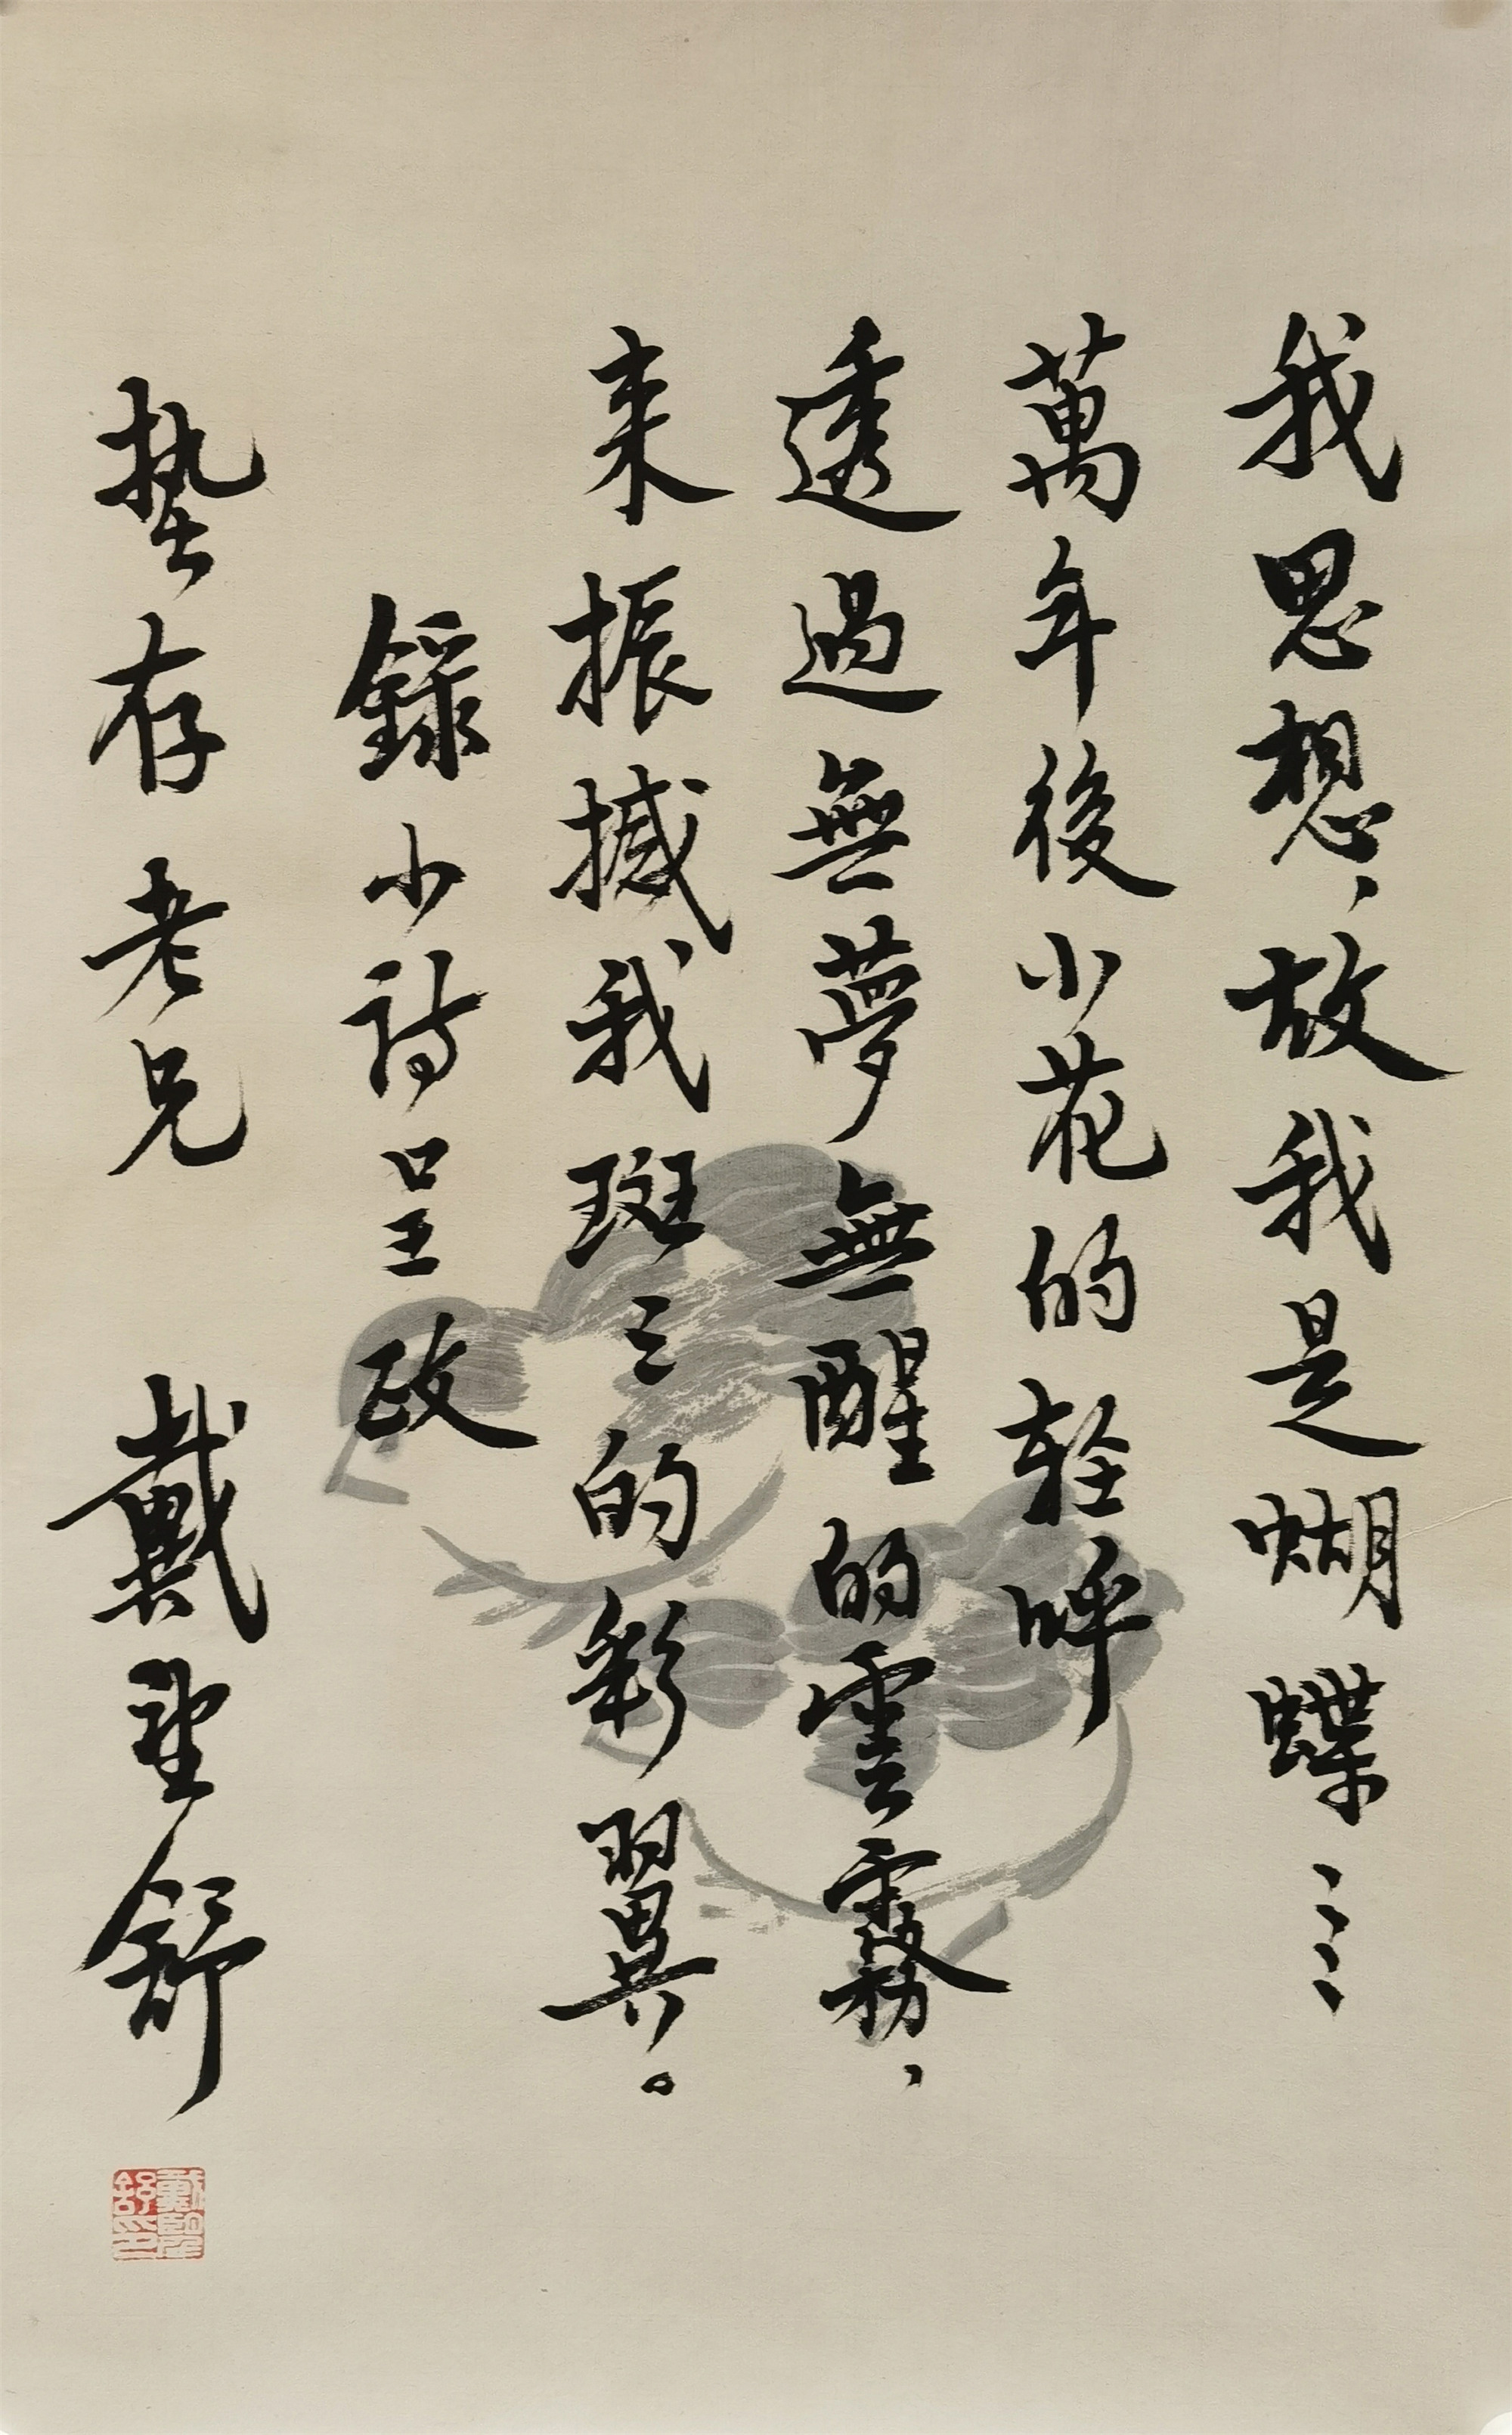 我思想，故我是蝴蝶⋯⋯
萬年後小花的轻呼
透過無夢無醒的雲霧，
来振撼我斑々的彩翼。
錄小詩呈政
蟄存老兄 戴望舒
戴望舒印